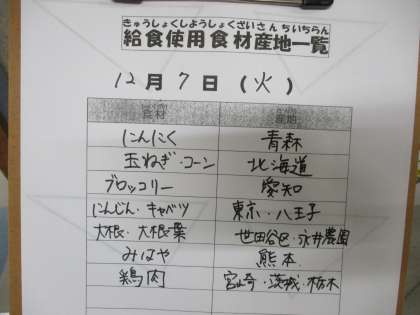 きゅうしょくしようしょくざいさんちいちらん
給食使用食材産地一覧
12月7日(火)
食材 産地
にんにく 青森
玉ねぎ・コーン 北海道
ブロッコリー 愛知
にんじん・キャベツ 東京・八王子
大根・大根葉 世田谷区・永井農園
みはや 熊本
鶏肉 宮崎・茨城・栃木